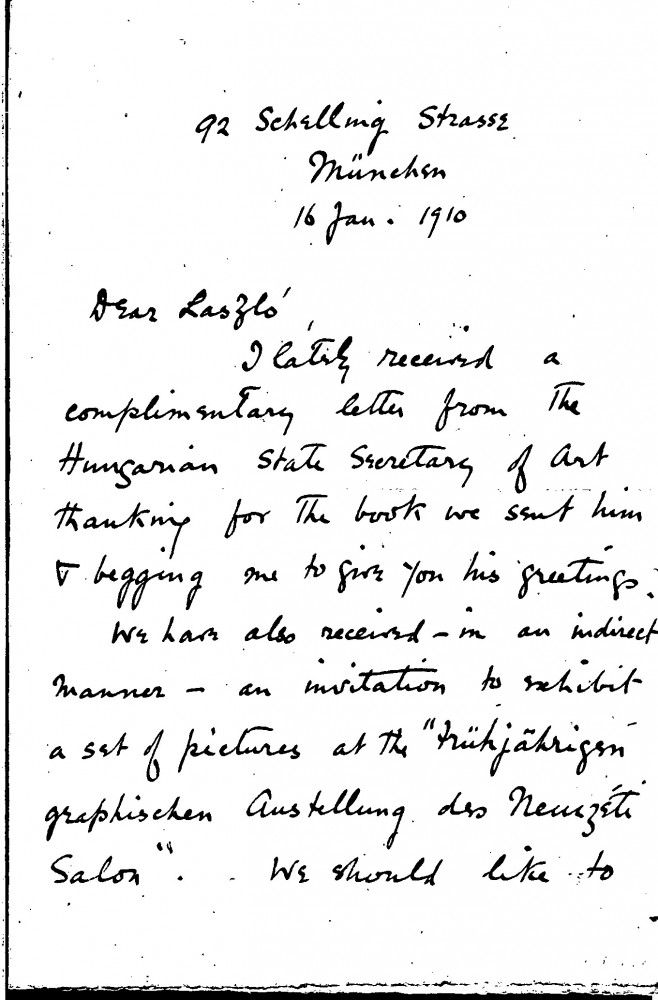 92 Schelling Strasse
München
16 Jan. 1910
Dear Laszló,
I lately received a
complimentary letter from the
Hungarian State Secretary of Art
thanking for the book we sent him
& begging me to give you his greetings.
We have also received – in an indirect
manner – an invitation to exhibit
a set of pictures at the "Frühjährigen
graphischen Austellung des Nemzéti
Salon". We should like to